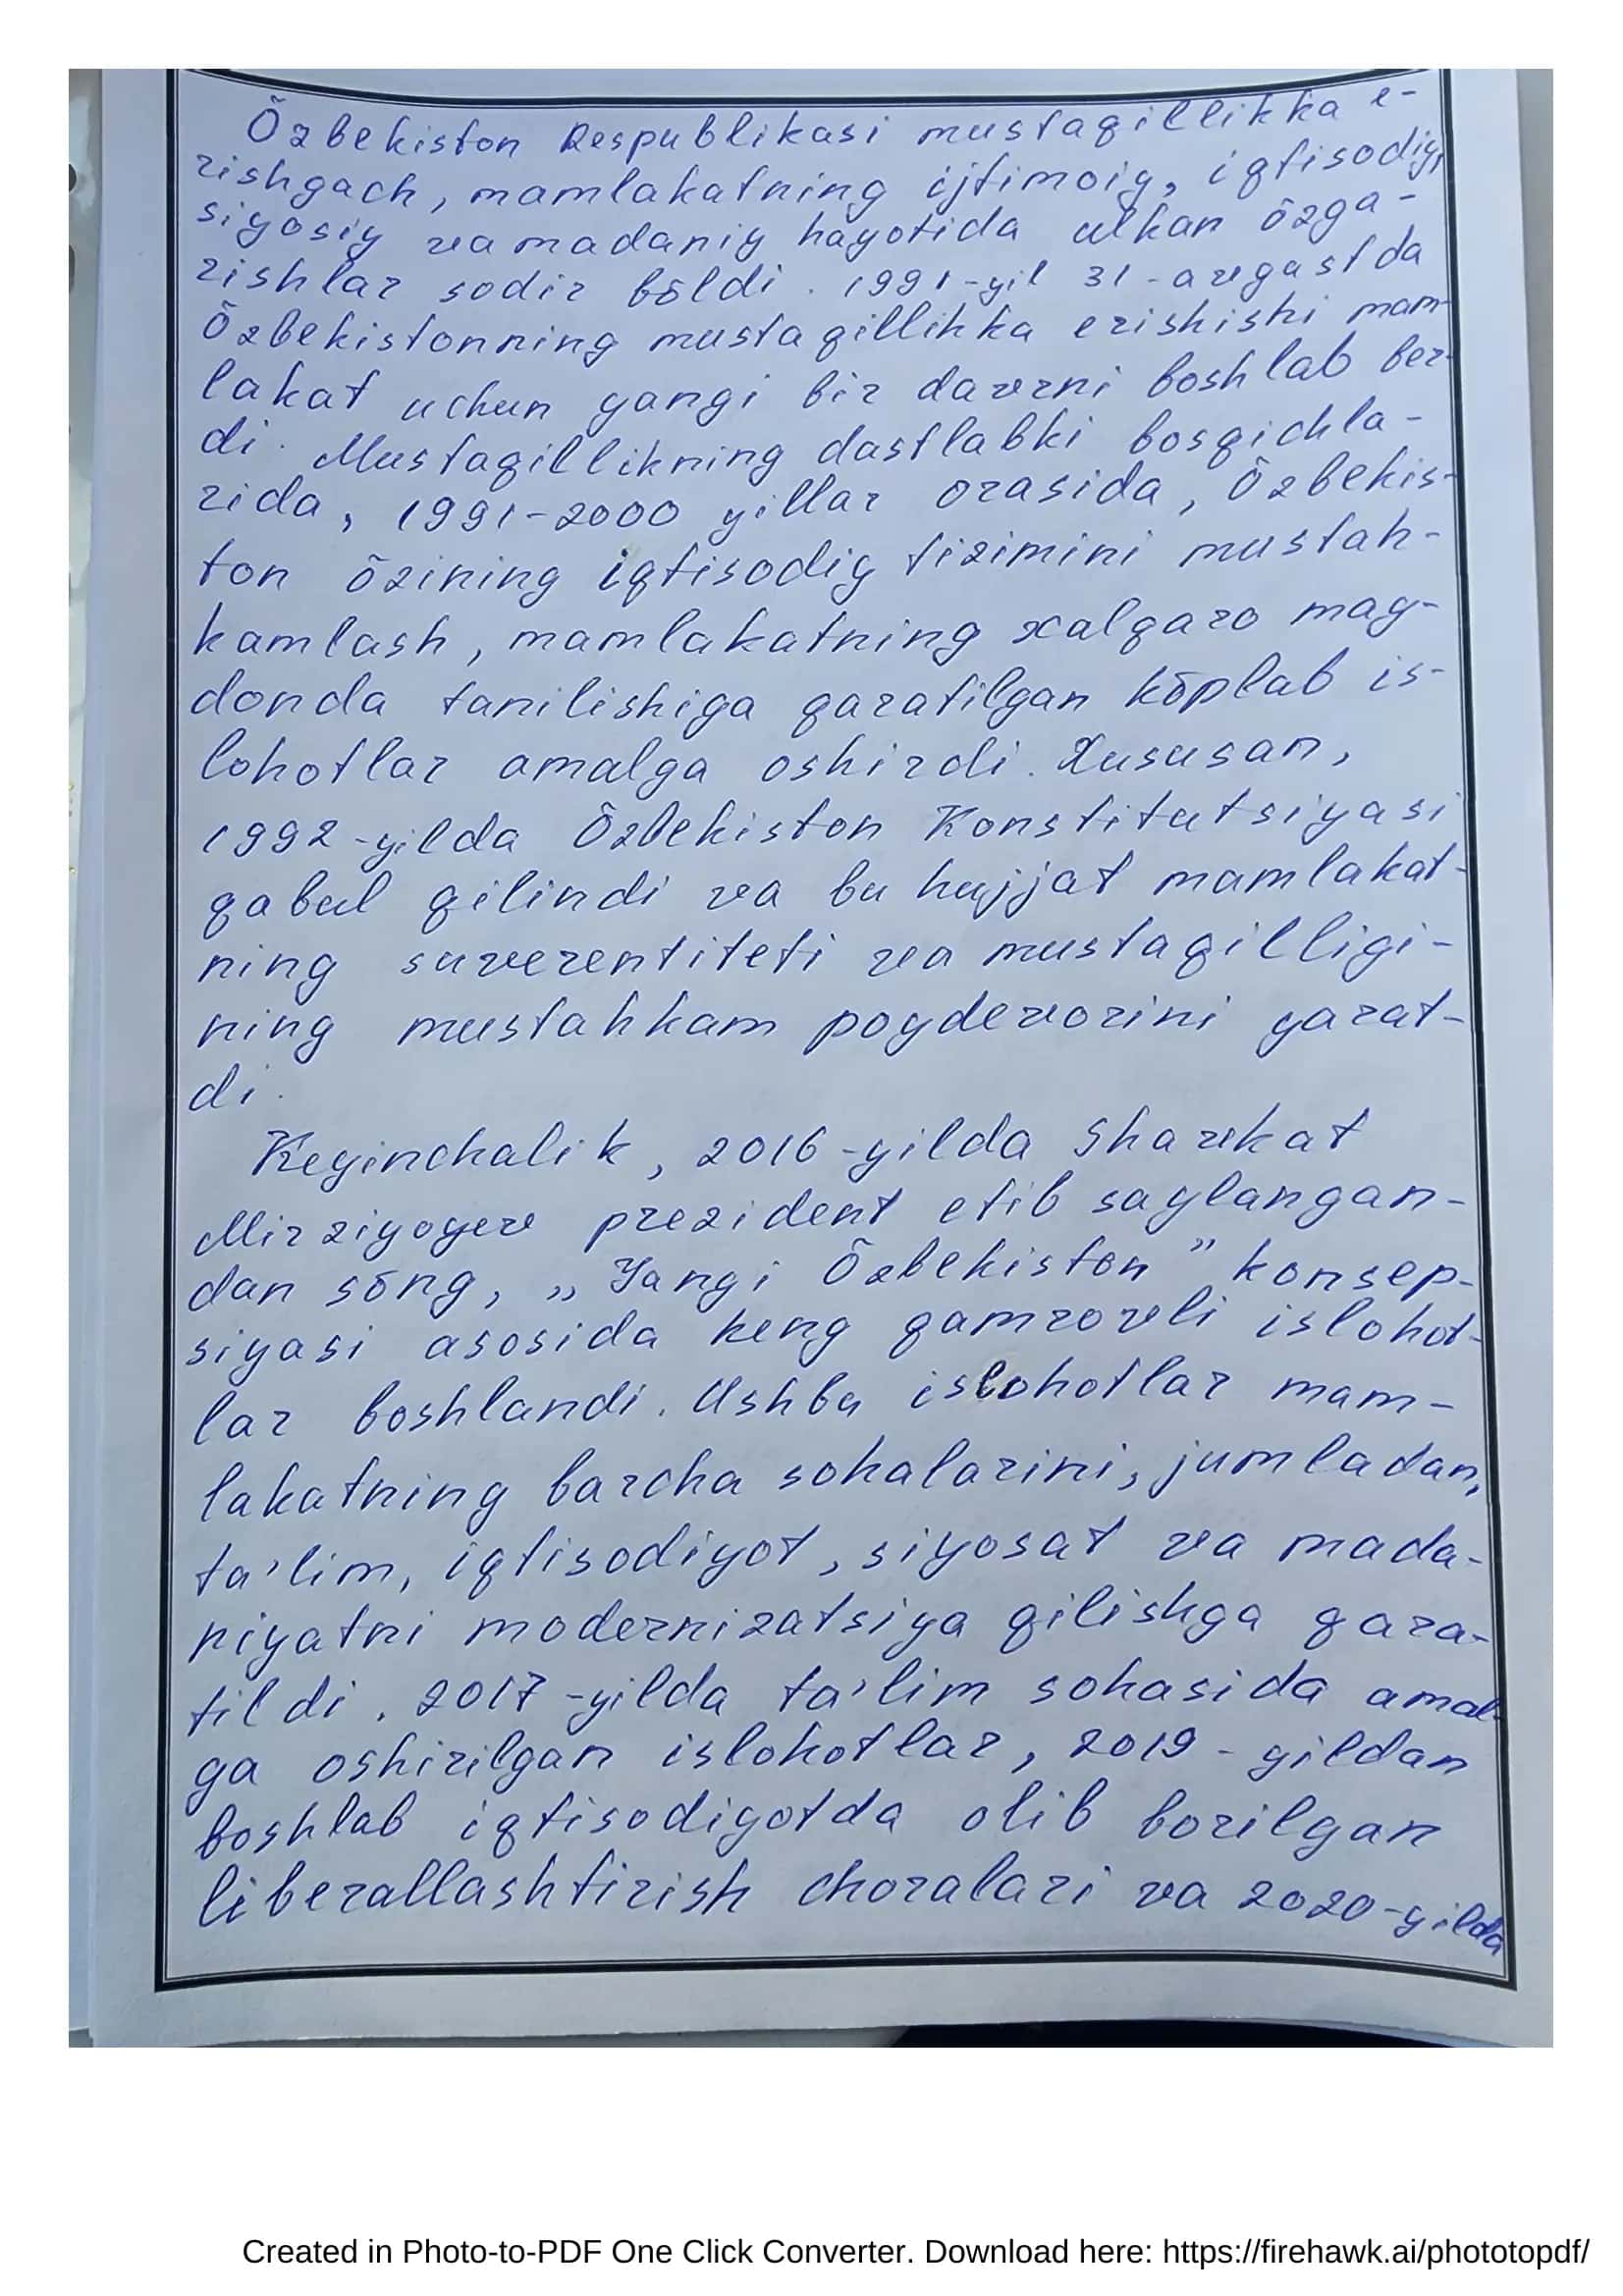 Õzbekiston Respublikasi mustaqillikka e-
rishgach, mamlakatning ijtimoiy, iqtisodiy,
siyosiy va madaniy hayotida ulkan õzga-
rishlar sodir bõldi. 1991-yil 31-avgustda
Õzbekistonning mustaqillikka erishishi mam-
lakat uchun yangi bir davrni boshlab ber-
di. Mustaqillikning dastlabki bosqichla-
rida, 1991-2000 yillar orasida, Õzbekis-
ton õzining iqtisodiy tizimini mustah-
kamlash, mamlakatning xalqaro may-
donda tanilishiga qaratilgan kõplab is-
lohotlar amalga oshirdi. Xususan,
1992-yilda Õzbekiston Konstitutsiyasi
qabul qilindi va bu hujjat mamlakat-
ning suverentiteti va mustaqilligi-
ning mustahkam poydevorini yarat-
di.
Keyinchalik, 2016-yilda Shavkat
Mirziyoyev prezident etib saylangan-
dan sõng, „Yangi Õzbekiston" konsep-
siyasi asosida keng qamrovli islohot-
lar boshlandi. Ushbu islohotlar mam-
lakatning barcha sohalarini, jumladan,
ta'lim, iqtisodiyot, siyosat va mada-
niyatni modernizatsiya qilishga qara-
tildi. 2017-yilda ta'lim sohasida amal-
ga oshirilgan islohotlar, 2019-yildan
boshlab iqtisodiyotda olib borilgan
liberallashtirish choralari va 2020-yilda
Created in Photo-to-PDF One Click Converter. Download here: https://firehawk.ai/phototopdf/